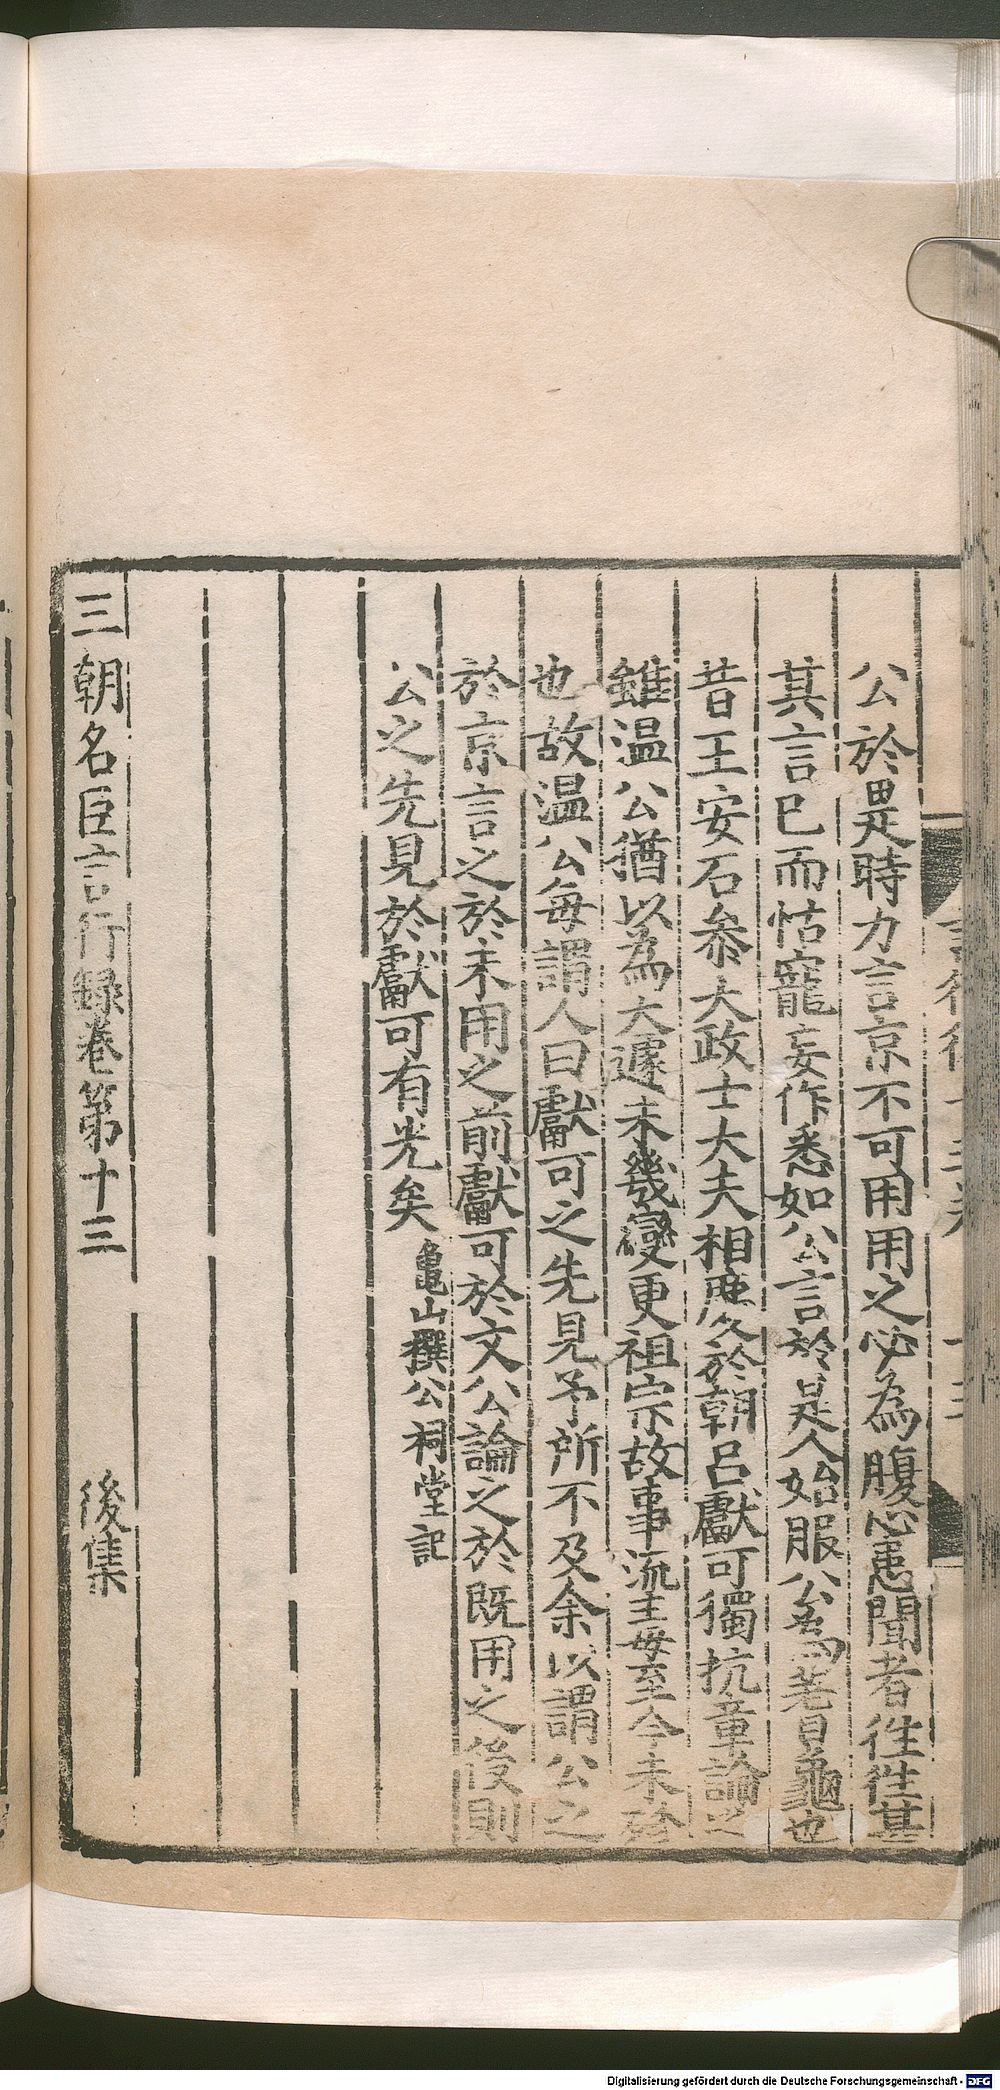 公於是時力言京不可用用之必為腹心患聞者徃徃甚
其言已而怙寵妄作悉如公言於是人始服公為蓍龜也
昔王安石叅大政士大夫相慶於朝吕獻可獨抗章論之
雖温公猶以為大遽未幾變更祖宗故事流毒至今未殄
也故温公每謂人曰獻可之先見予所不及余以謂公之
於京言之於未用之前獻可於文公論之於既用之後則
公之先見於獻可有光矣 龜山撰公祠堂記
三朝名臣言行録卷第十三 後集
Digitalisierung gefördert durch die Deutsche Forschungsgemeinschaft - DFG